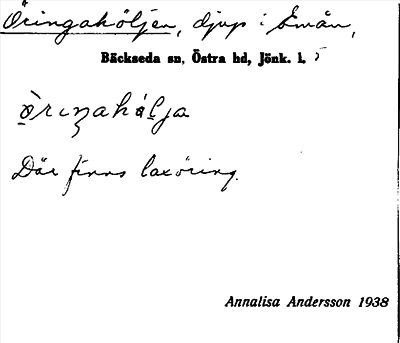 Öringahöljen, djup i Emån,
Bäckseda sn, Östra hd, Jönk. l. 5
öriŋahölja
Där finns laxöring.
Annalisa Andersson 1938